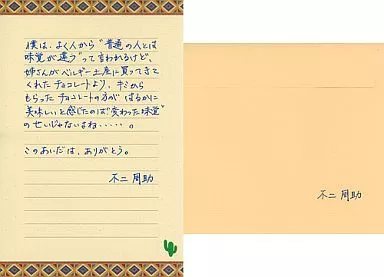 僕は、よく人から“普通の人とは
味覚が違う”って言われるけど、
姉さんがベルギー土産に買ってきて
くれたチョコレートより、キミから
もらったチョコレートの方が はるかに
美味しいと感じたのは“変わった味覚”
のせいじゃないよね・・・・・。
このあいだは、ありがとう。
不二 周助
不二 周助